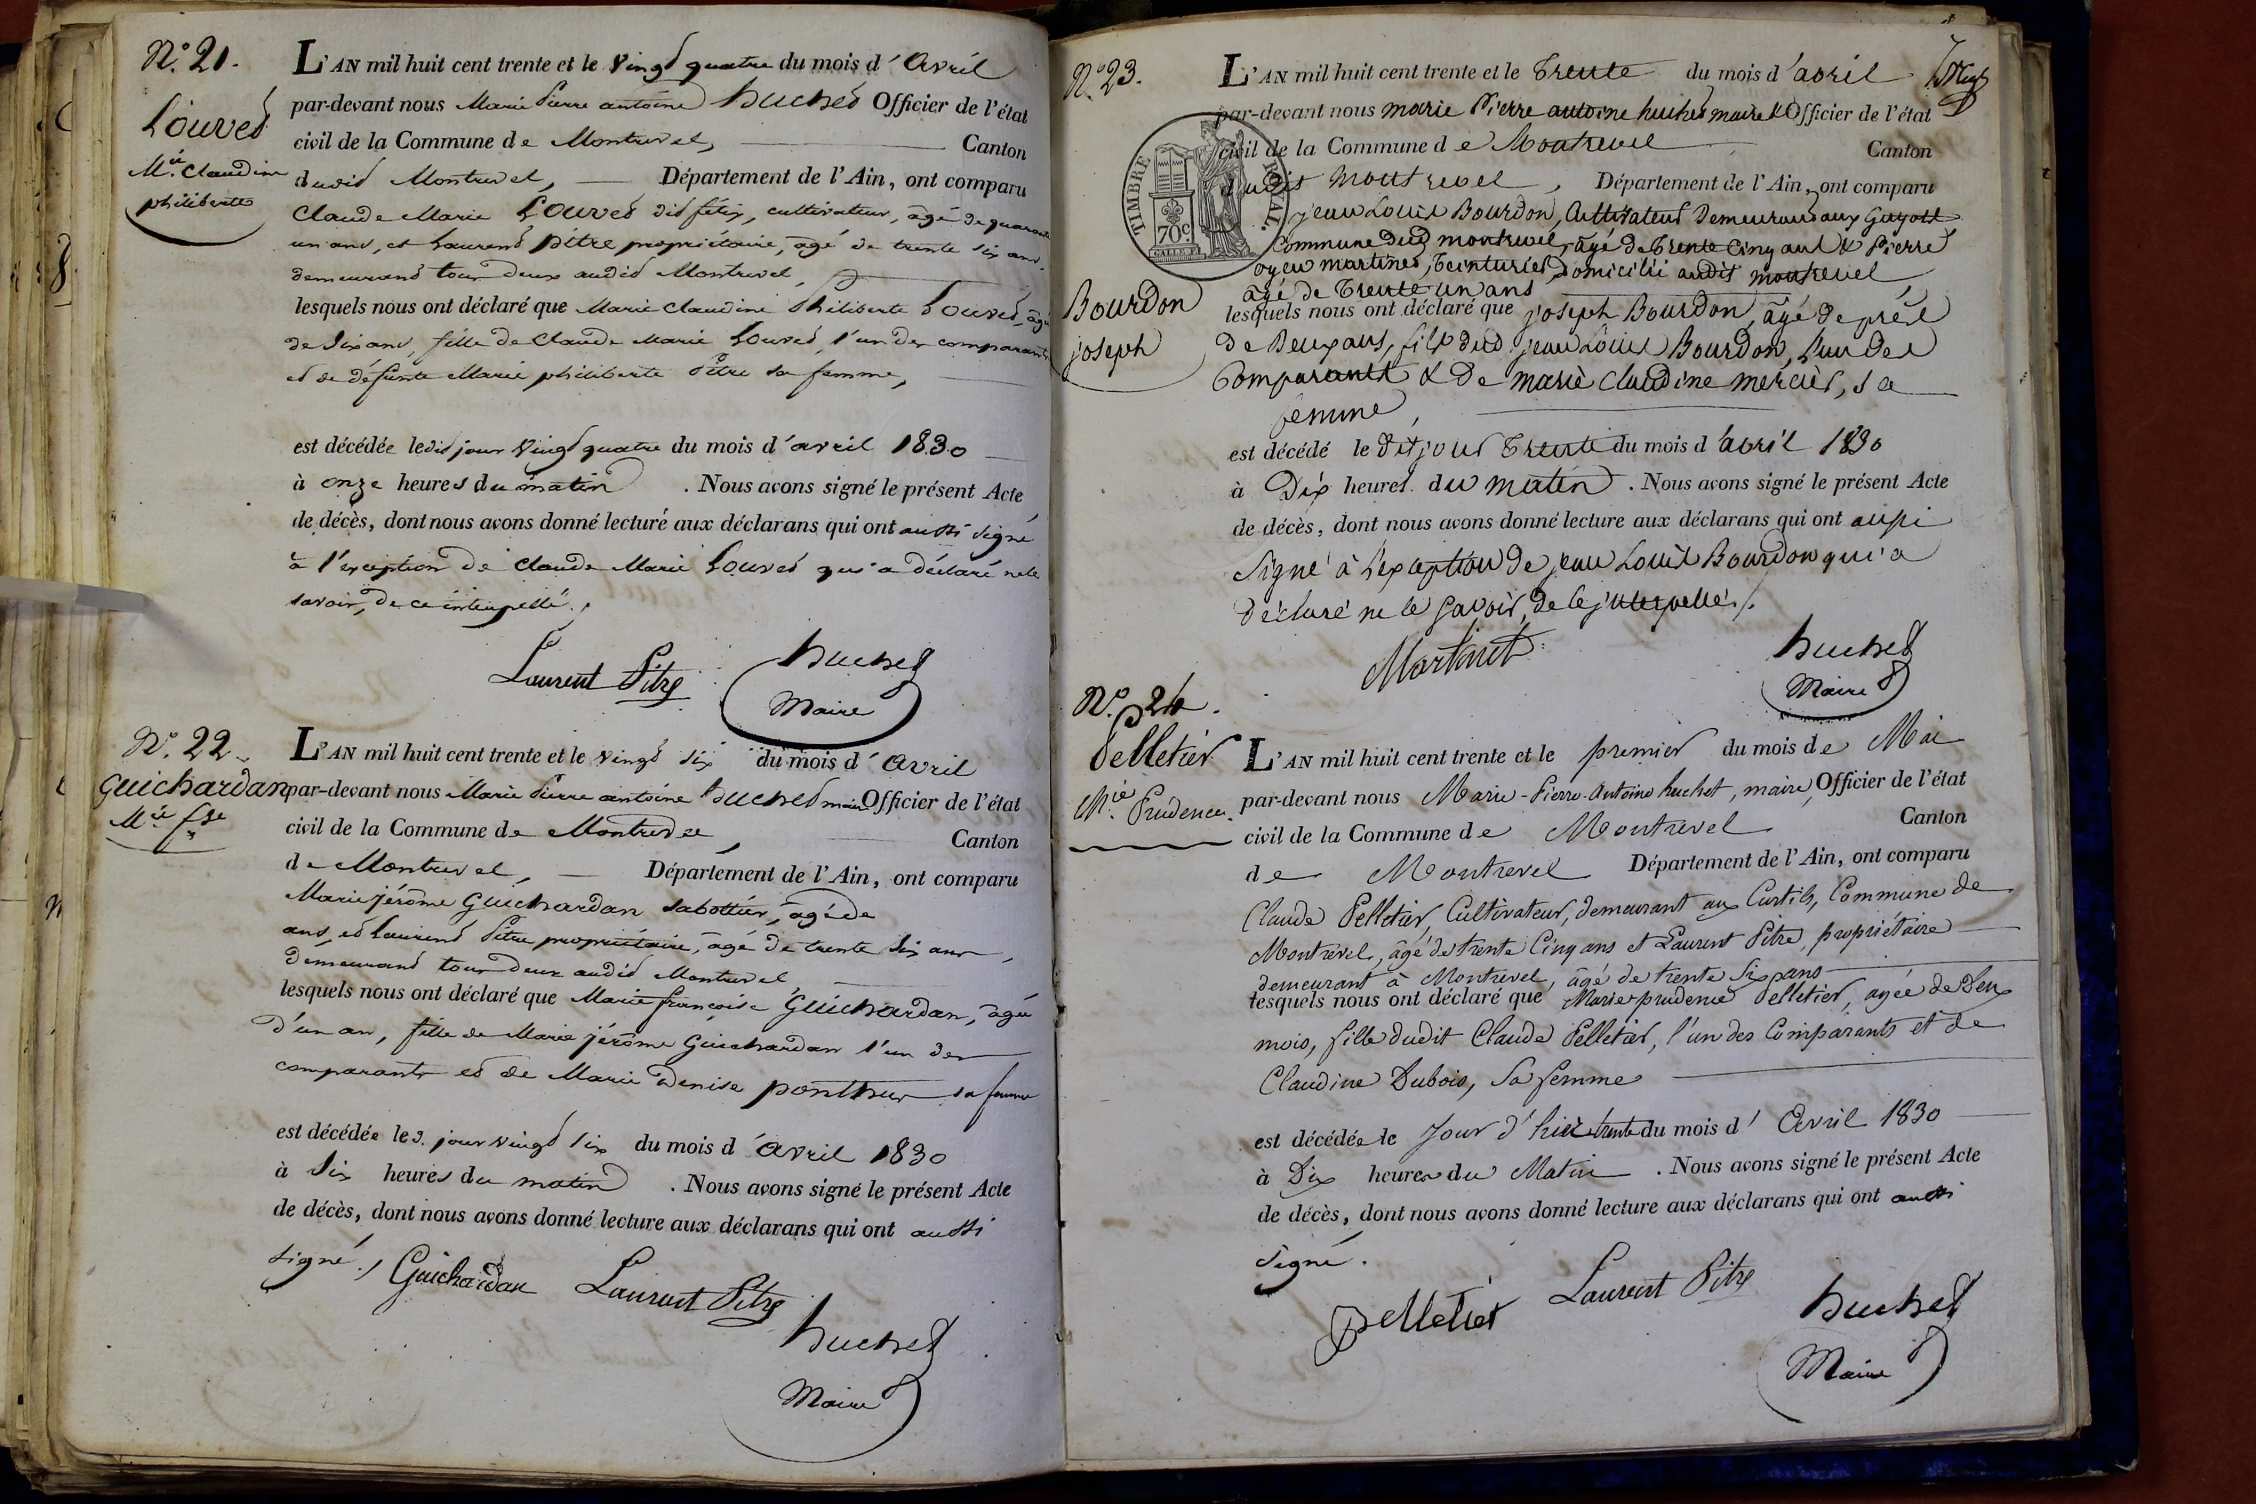 N.° 21.
Louvet
M.ie Claudine
philiberte
L'AN mil huit cent trente et le vingt quatre du mois d'avril
par-devant nous Marie Pierre antoine huchet Officier de l'état
civil de la Commune de Montrevel, Canton
dudit Montrevel, Département de l'Ain, ont comparu
Claude Marie Louvet dit félix, cultivateur, âgé de quarante
un ans, et Laurent Pitre propriétaire, âgé de trente six ans,
demeurant tous deux audit Montrevel,
lesquels nous ont déclaré que Marie Claudine Philiberte Louvet, âgée
de six ans, fille de Claude Marie Louvet, l'un des comparants
et de défunte Marie philiberte Pitre sa femme,
est décédée ledit jour vingt quatre du mois d'avril 1830
à onze heures du matin. Nous avons signé le présent Acte
de décès, dont nous avons donné lecture aux déclarans qui ont aussi signé
à l'exception de Claude Marie Louvet qui a déclaré ne le
savoir, de ce interpellé.
Laurent Pitre
huchet
Maire
N.° 22.
Guichardan
M.ie f.se
L'AN mil huit cent trente et le vingt six du mois d'avril
par-devant nous Marie Pierre antoine huchet maire Officier de l'état
civil de la Commune de Montrevel, Canton
de Montrevel, Département de l'Ain, ont comparu
Marie jérôme Guichardan sabottier, âgé de
ans, et Laurent Pitre propriétaire, âgé de trente six ans,
demeurant tous deux audit Montrevel
lesquels nous ont déclaré que Marie françoise Guichardan, âgée
d'un an, fille de Marie jérôme Guichardan l'un des
comparants et de Marie Denise ponthus sa femme
est décédée le d. jour vingt six du mois d'avril 1830
à six heures du matin. Nous avons signé le présent Acte
de décès, dont nous avons donné lecture aux déclarans qui ont aussi
signé.
Guichardan Laurent Pitre
huchet
Maire
N.° 23.
Bourdon
joseph
TIMBRE ROYAL.
70c
L'AN mil huit cent trente et le trente du mois d'avril
par-devant nous marie Pierre antoine huchet maire & Officier de l'état
civil de la Commune de Montrevel Canton
dudit montrevel, Département de l'Ain, ont comparu
jean Louis Bourdon, Cultivateur demeurant aux Guyott
Commune dud. montrevel, âgé de trente cinq ans & Pierre
oyen martinet, teinturier, domicilié audit montrevel,
âgé de trente un ans
lesquels nous ont déclaré que joseph Bourdon, âgé de près
de Deux ans, fils dud. jean Louis Bourdon, l'un des
Comparants & de marie claudine mercier, sa
femme,
est décédé le dit jour trente du mois d'avril 1830
à Dix heures du matin. Nous avons signé le présent Acte
de décès, dont nous avons donné lecture aux déclarans qui ont aussi
signé à l'exception de jean Louis Bourdon qui a
déclaré ne le savoir, de ce interpellé.
Martinet
huchet
Maire
N.° 24.
Pelletier
M.ie Prudence.
L'AN mil huit cent trente et le premier du mois de Mai
par-devant nous Marie-Pierre-Antoine huchet, maire, Officier de l'état
civil de la Commune de Montrevel Canton
de Montrevel Département de l'Ain, ont comparu
Claude Pelletier, Cultivateur, demeurant aux Curtils, Commune de
Montrevel, âgé de trente Cinq ans et Laurent Pitre, propriétaire
demeurant à Montrevel, âgé de trente Six ans
lesquels nous ont déclaré que Marie prudence Pelletier, agée de Deux
mois, fille dudit Claude Pelletier, l'un des Comparants et de
Claudine Dubois, Sa femme
est décédée le Jour d'hier trente du mois d'Avril 1830
à Dix heures du Matin. Nous avons signé le présent Acte
de décès, dont nous avons donné lecture aux déclarans qui ont aussi
signé.
pelletier Laurent Pitre
huchet
Maire